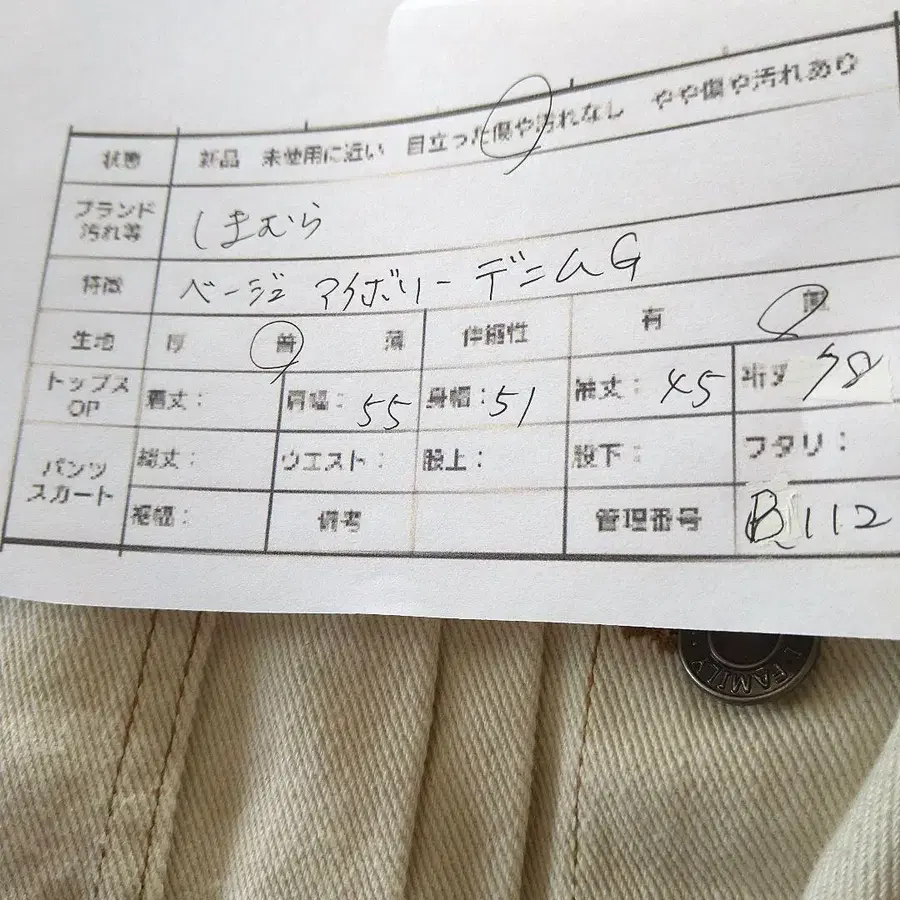 状態 新品 未使用に近い 目立った傷や汚れなし やや傷や汚れあり
ブランド 汚れ等 しまむら
特徴 ベージュ アイボリー デニムG
生地 厚 普 薄 伸縮性 有 無
トップス OP 着丈: 肩幅: 55 身幅: 51 袖丈: 45 裄丈 78
パンツ スカート 総丈: ウエスト: 股上: 股下: ワタリ:
裾幅: 備考 管理番号 B112
FAMILY